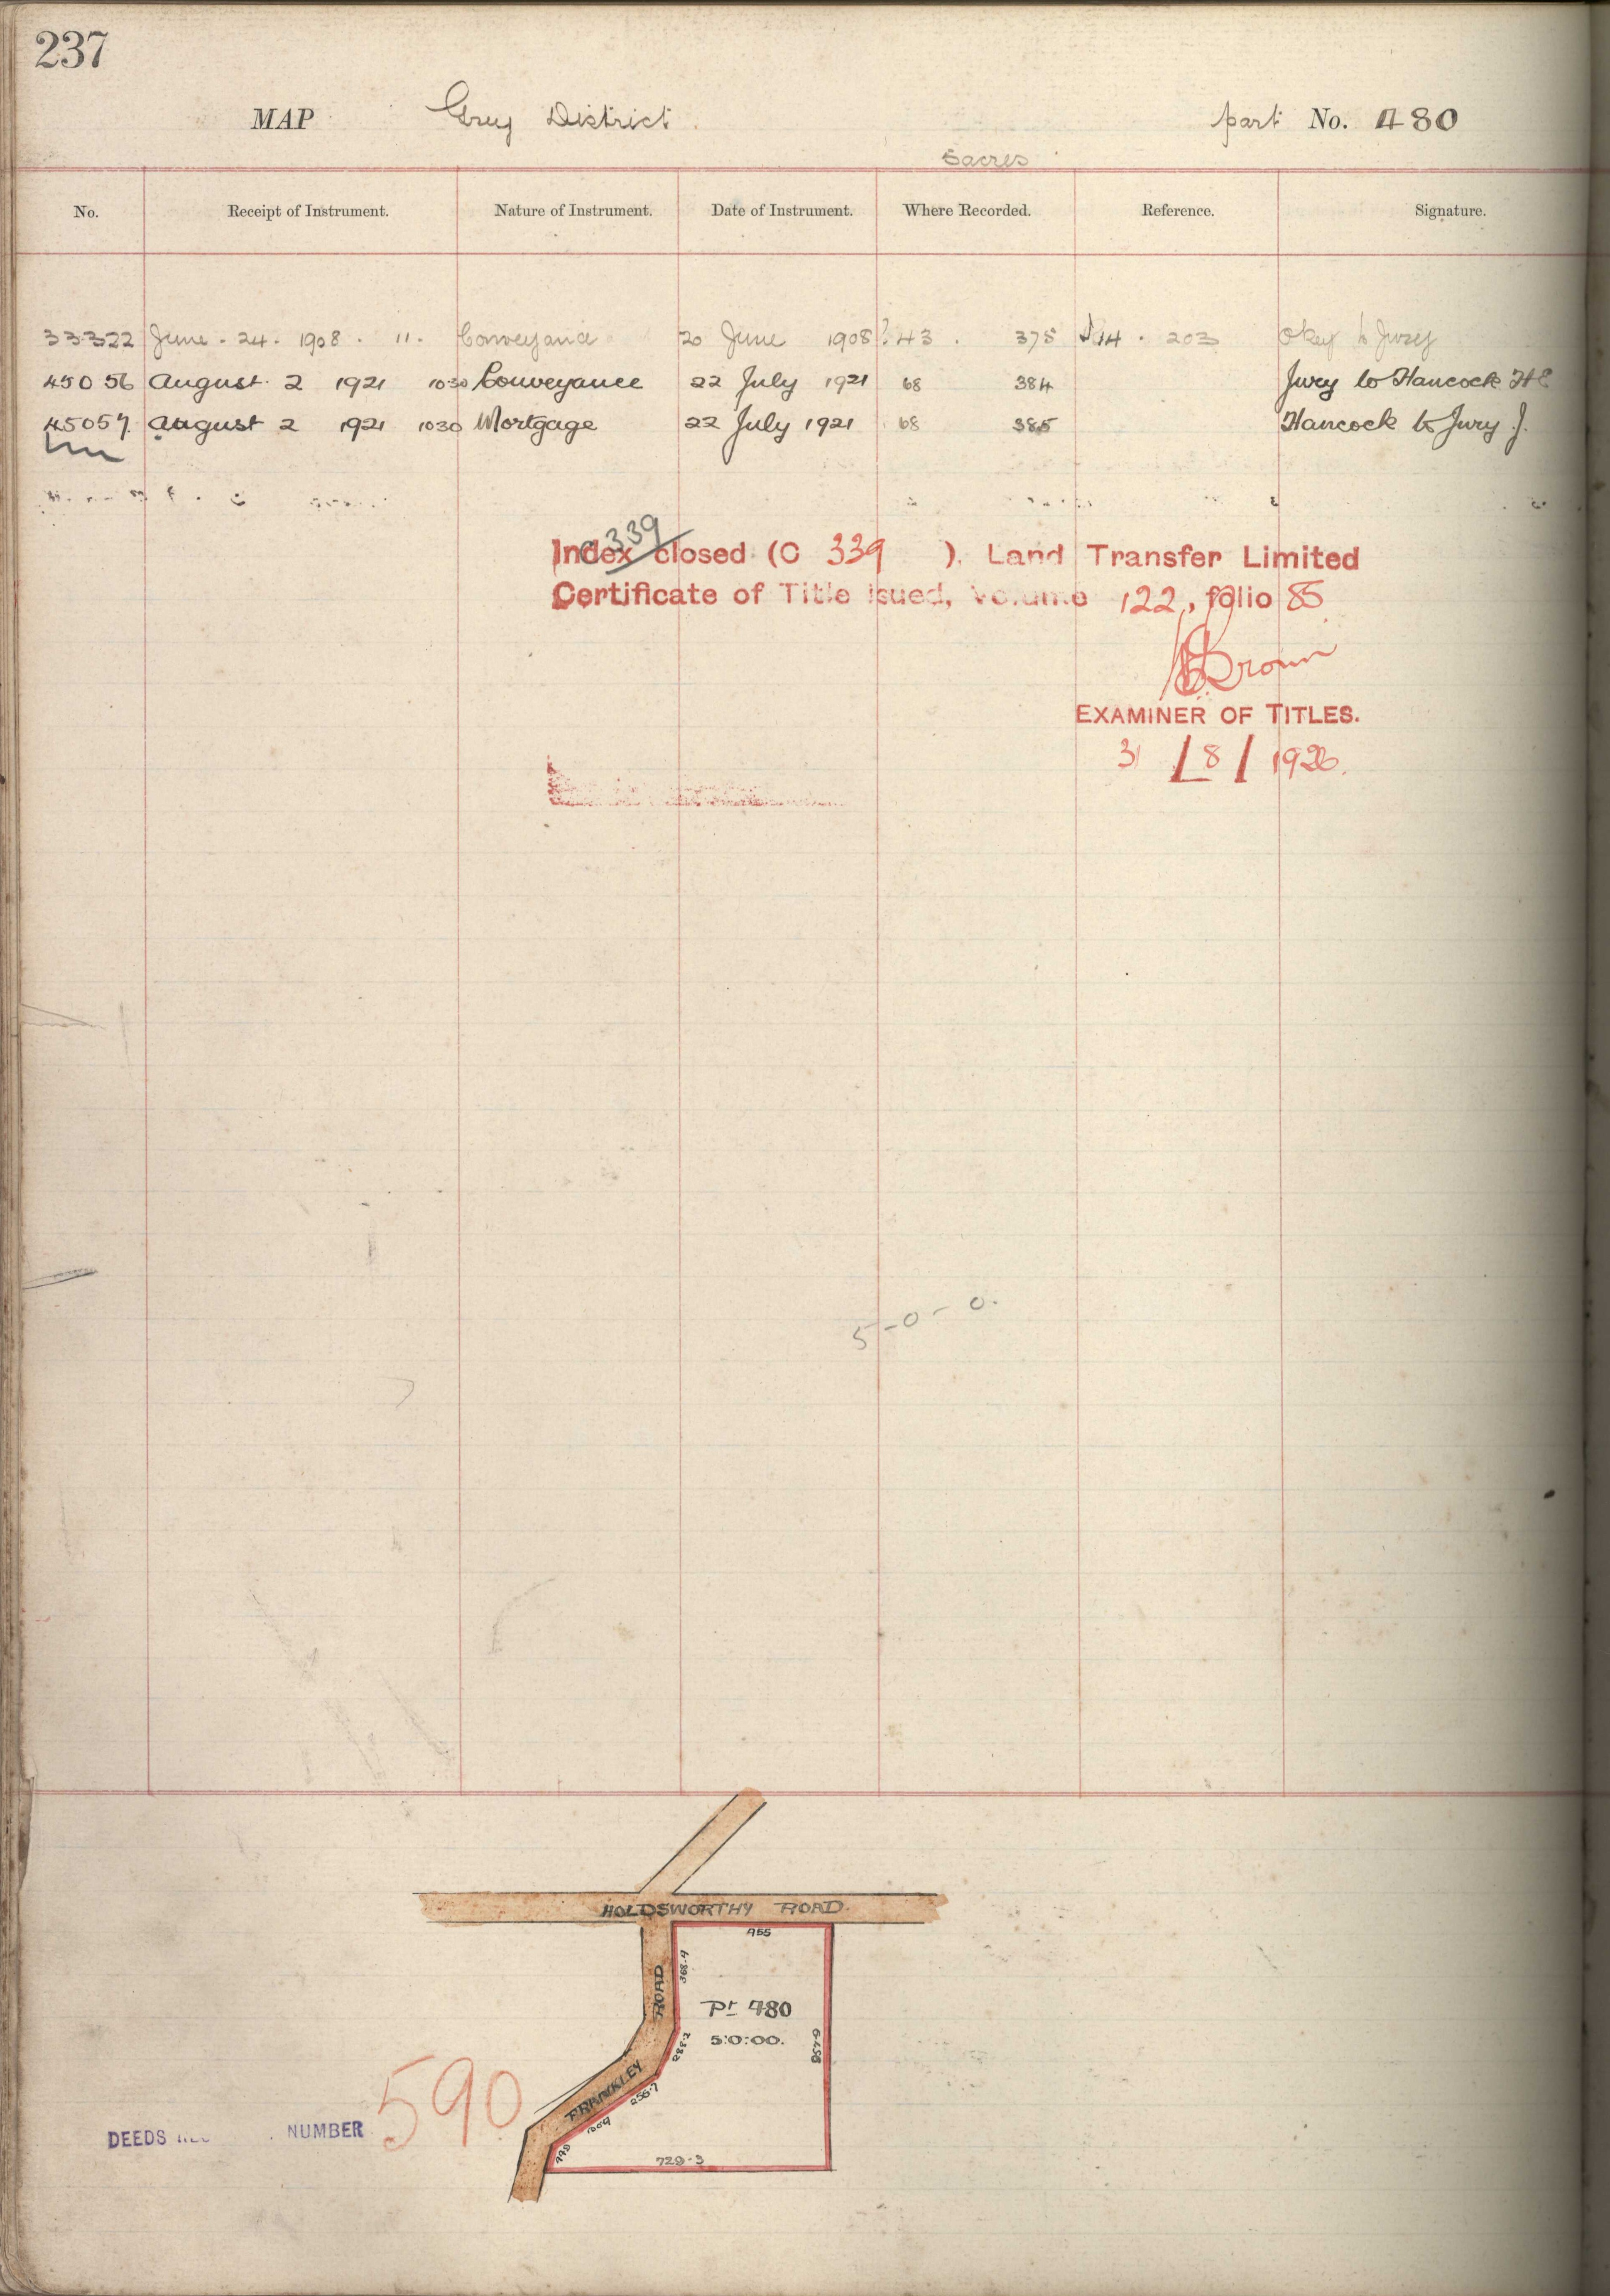 237
MAP Grey District part No. 480
5 acres
No. Receipt of Instrument. Nature of Instrument. Date of Instrument. Where Recorded. Reference. Signature.
33322 June . 24 . 1908 . 11 . Conveyance 20 June 1908 43 . 375 . 203 Okey to Jury
45056 August 2 1921 1030 Conveyance 22 July 1921 68 384 Jury to Hancock H E
45057 August 2 1921 1030 Mortgage 22 July 1921 68 385 Hancock to Jury J.
339
Index closed (C 339 ). Land Transfer Limited
Certificate of Title issued, Volume 122, folio 85
Brown
EXAMINER OF TITLES.
31 / 8 / 1926.
5 - 0 - 0.
HOLDSWORTHY ROAD.
455
368.9
ROAD
Pt 480
5:0:00.
288.2
FRANKLEY
256.7
729.3
590
DEEDS NUMBER